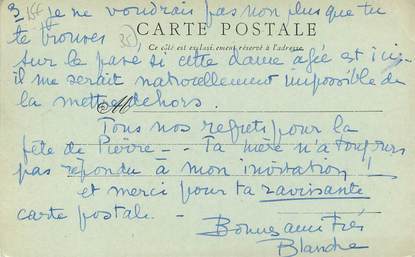 3 je ne voudrais pas non plus que tu
CARTE POSTALE
te trouves
Ce côté est exclusivement réservé à l'adresse.
sur le pavé si cette dame agée est ici -
il me serait naturellement impossible de
la mettre dehors.
Tous nos regrets pour la
fête de Pierre - - Ta mère n'a toujours
pas répondu à mon invitation !
et merci pour ta ravissante
carte postale. -
Bonnes amitiés
Blanche